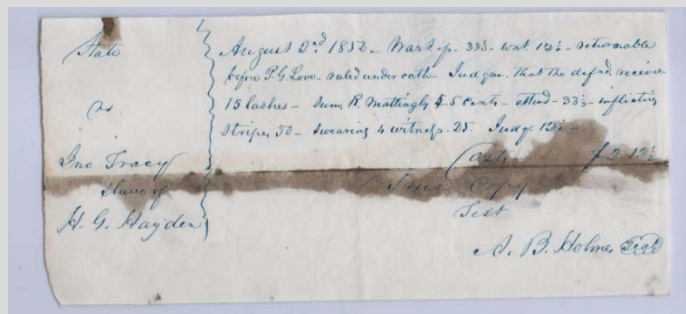 State
vs
Jno Tracy
slave of
H. G. Hayden
August 2nd 1852 - Warr ip. 33⅓ - wit. 12½ - returnable
before P. G. Love - ruled under oath - Judgm. that the defnd. receive
15 lashes - Sum. R. Mattingly 5 cents - attend - 33⅓ - inflicting
stripes 50 - swearing 4 witness - 25. Judg. 12½ -
Costs $2.12½
True Copy
Test
A. B. Holmes